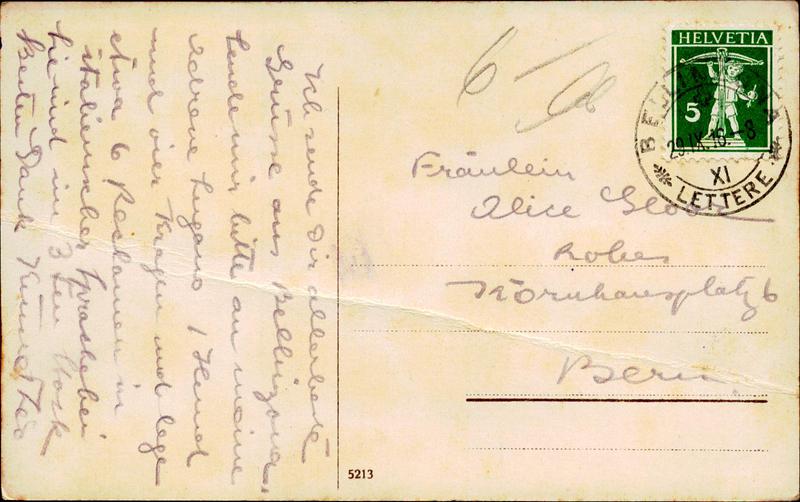 Ich sende Dir allerbeste
Grüsse aus Bellinzona,
sende mir bitte an meine
Adresse Lugano 1 Hemd
und vier Kragen und lege
etwa 6 Reclamen in
italienischer Sprache bei
Sie sind im 3ten Stock
Besten Dank
6
HELVETIA
5
BELLINZONA
29.IX.16.-8
XI
LETTERE
Fräulein
Alice
Kornhausplatz 6
Bern.
5213